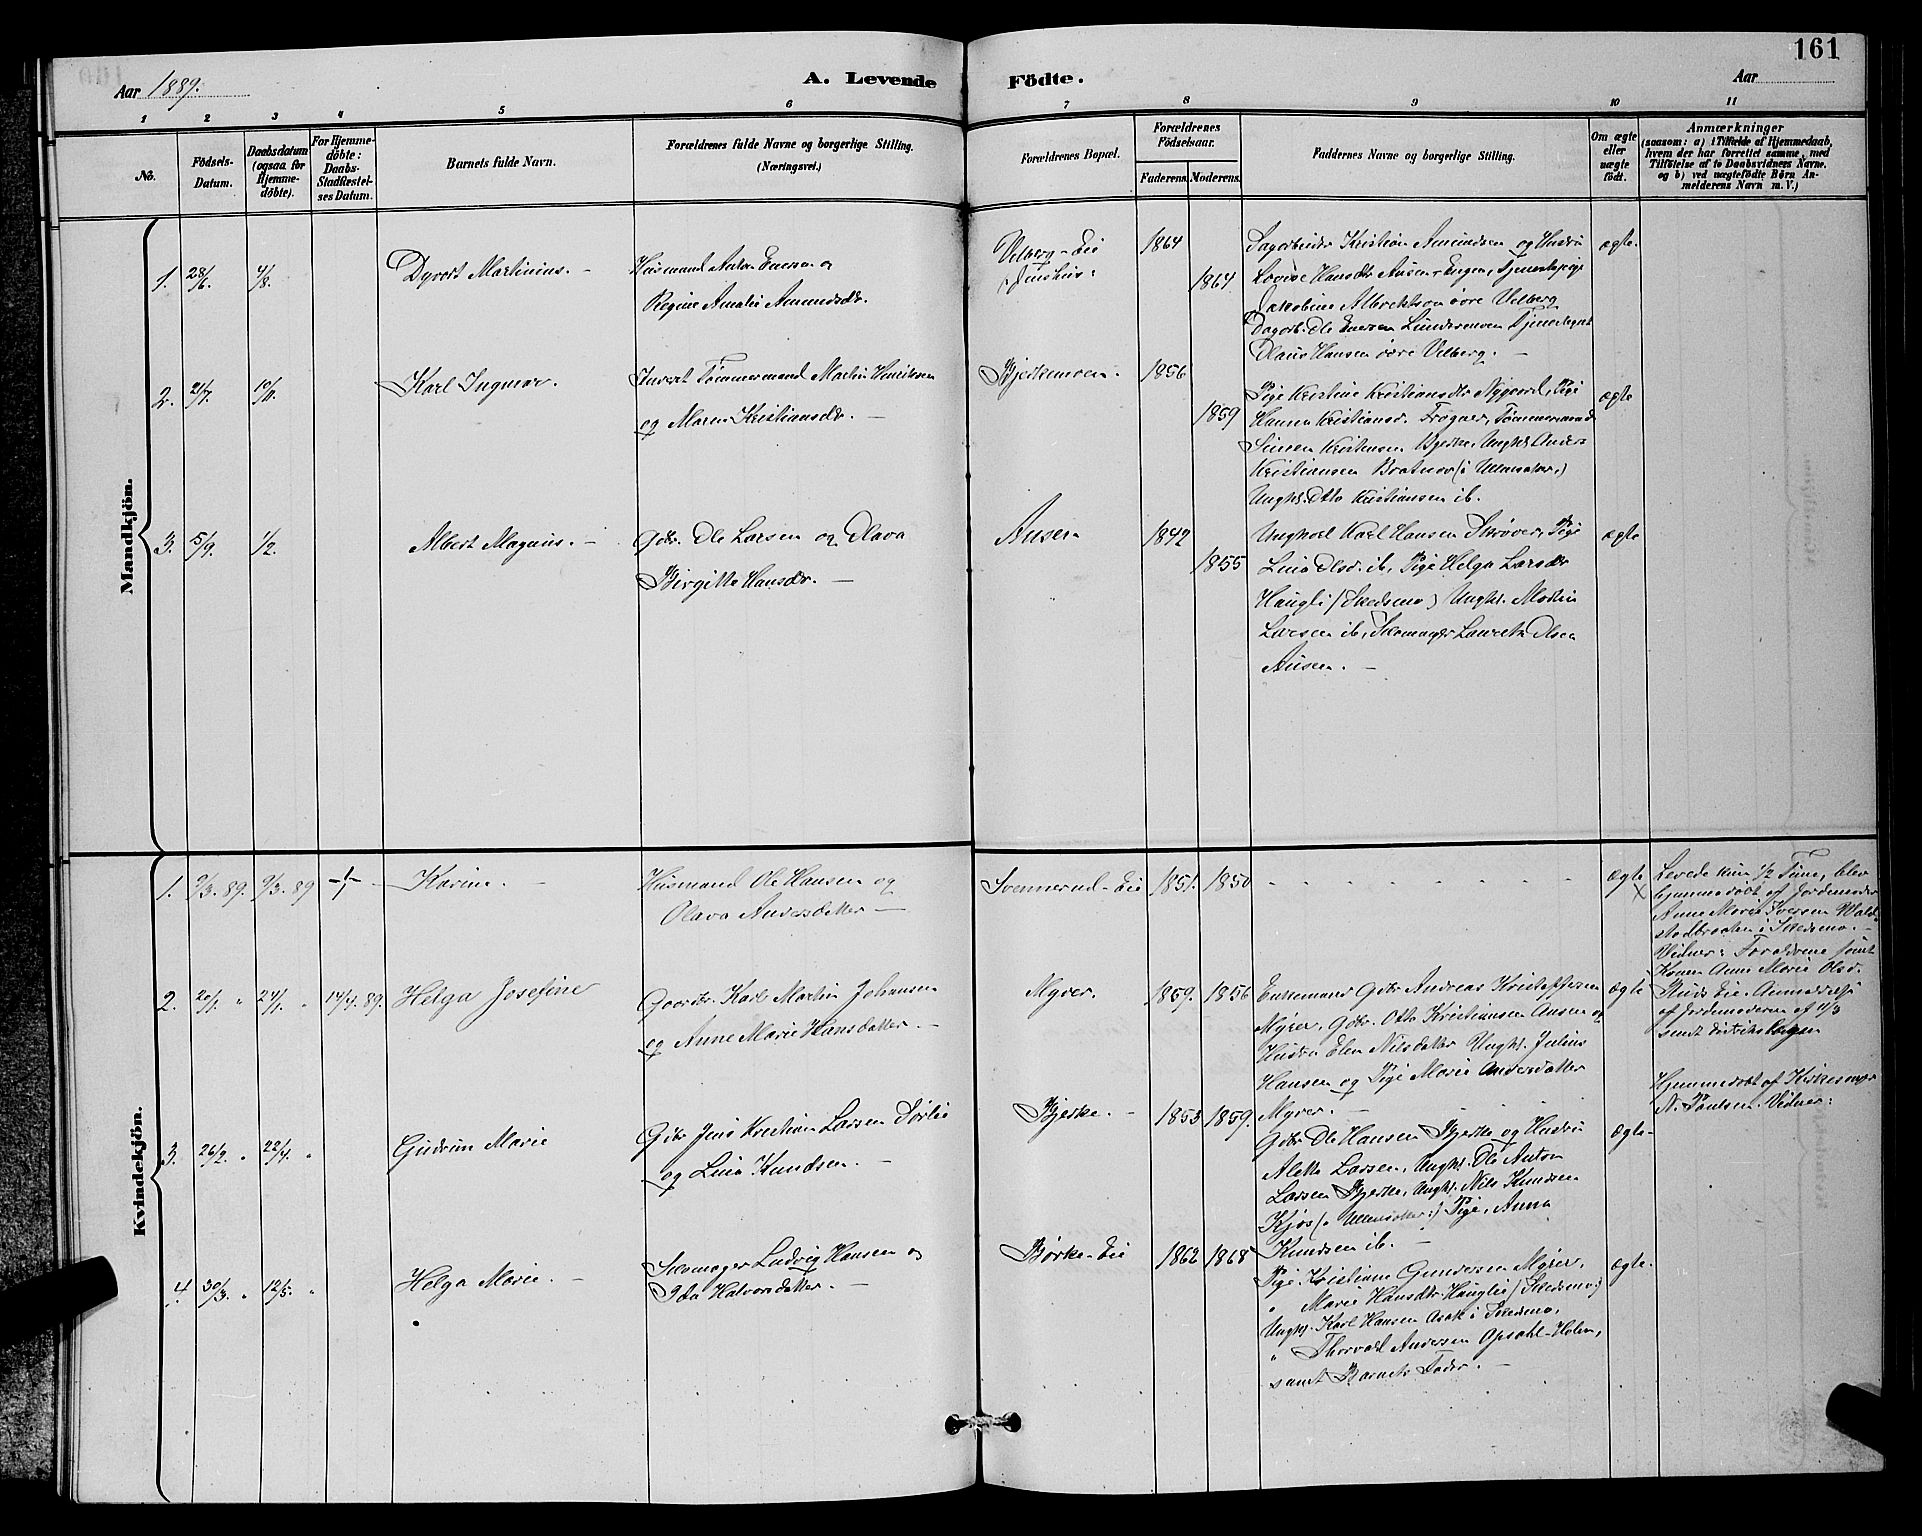 161
Aar 1889.
A. Levende Födte.
Aar
1 2 3 4 5 6 7 8 9 10 11
No.
Födsels-
Datum.
Daabsdatum
(ogsaa for
Hjemme-
döbte).
For Hjemme-
döbte:
Daabs-
Stadfæstel-
ses Datum.
Barnets fulde Navn.
Forældrenes fulde Navne og borgerlige Stilling.
(Næringsvei.)
Forældrenes Bopæl.
Forældrenes
Födselsaar.
Faderens. Moderens.
Faddernes Navne og borgerlige Stilling.
Om ægte
eller
uægte
födt.
Anmærkninger
(saasom: a) i Tilfælde af Hjemmedaab,
hvem der har forrettet samme, med
Tilföielse af to Daabsvidners Navne,
og b) ved uægtefödte Börn An-
melderens Navn m. V.)
Mandkjön.
1. 28/6. 4/8. Dyvert Martinius. -
Husmand Anton Enersen og
Regine Amalie Amundsdr.
Velberg-Eie
1864
1864
Dagarbeider Kristian Amundsen og Hustru
Lovise Hansdtr Ausen-Engen, Tjenestepige
Jakobine Albrektsen övre Velberg
Dagarb. Ole Enersen Lundermoen Tjenestegut
Olaus Hansen övre Velberg. -
ægte.
2. 21/7. 10/11. Karl Ingmar.
Inderst Tömmermand Martin Henriksen
og Maren Kristiansdr. -
Bjerkemoen.
1856
1859
Pige Kristine Kristiansdtr Nygaard, Pige
Hanna Kristiansd. Frogner, Tömmermand
Simen Kristiansen Bjerke, Unghl. Anders
Kristiansen Bratner (i Ullensaker,)
Unghl. Otto Kristiansen ib.
ægte
3. 5/9. 1/2. Albert Magnus. -
Gdbr. Ole Larsen og Olava
Birgitte Hansdr. -
Ausen
1842
1855
Ungkarl Karl Hansen Skröver, Pige
Lina Olsd. ib, Pige Helga Larsdr
Haugli (Skedsmo) Unghl. Martin
Larsen ib, Skomager Lauritz Olsen
Ausen. -
ægte
Kvindekjön.
1. 9/3. 89. 9/3. 89 -,- Karine. -
Husmand Ole Hansen og
Olava Andersdatter -
Svennerud-Eie 1851. 1850
- - - - - - - - -
ægte
x
Levede kun 1/2 Time, blev
hjemmedöbt af Jordemoder
Anne Marie Iversen Vald-
stadbraaten i Skedsmo. -
Vidner: Forældrene samt
Konen Anne Marie Olsd.
Ruds Eie. Anmeldelse
af Jordemoderen af 11/3
sendt distriktslægen
2. 20/1 " 24/1 " 14/4. 89. Helga Josefine
Gaardbr. Karl Martin Johansen
og Anne Marie Hansdatter. -
Myrer. 1859. 1856
Enkemand Gdbr Andreas Kristoffersen
Myrer, Gdbr. Otto Kristiansen Ausen og
Hustru Elen Nilsdatter Unghl. Julius
Hansen og Pige Marie Andersdatter
Myrer. -
ægte
Hjemmedöbt af Kirkesanger
N. Paulsen. Vidner:
3. 26/2. " 22/4. " Gudrun Marie
Gdbr Jens Kristian Larsen Sörlie
og Lina Knudsen. -
Bjerke. - 1853 1859.
Gdbr Ole Hansen Bjerke og Hustru
Alette Larsen, Unghl. Ole Anton
Larsen Bjerke, Unghl. Nils Knudsen
Kjos (i Ullensaker:) Pige, Anna
Knudsen ib. -
ægte-
4. 30/3. " 12/5. " Helga Marie. -
Skomager Ludvig Hansen og
Ida Halvorsdatter. -
Börke-Eie 1862 1868
Pige Kristiane Gundersen Myrer,
" Marie Hansdtr Hauglie (Skedsmo:)
Unghl. Karl Hansen Asak i Skedsmo,
" Thorvald Andersen Opsahl-Holm,
samt Barnets Fader. -
ægte.